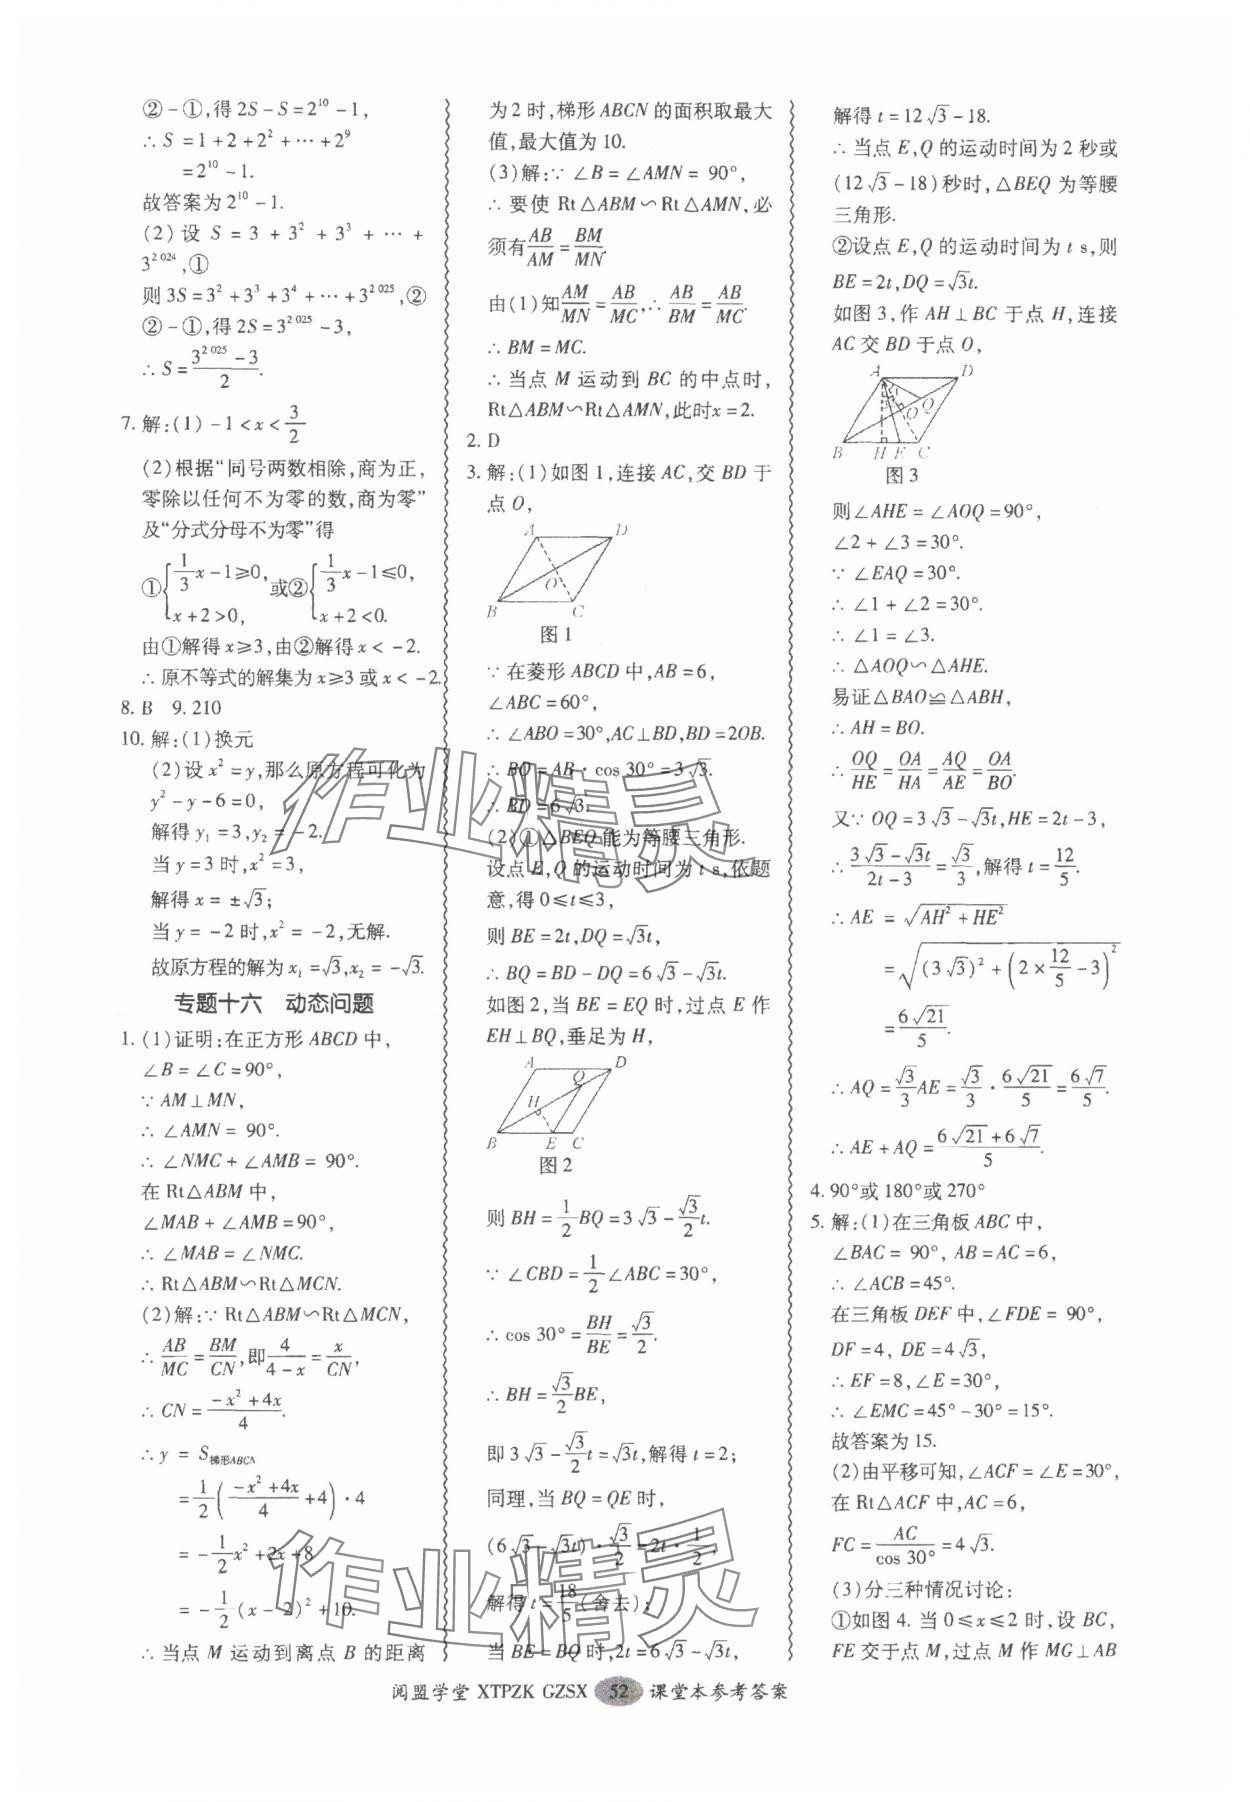 ②-①,得2S-S=2^{10}-1,
∴S=1+2+2^2+…+2^9
=2^{10}-1.
故答案为2^{10}-1.
(2)设S=3+3^2+3^3+…+
3^{2 024},①
则3S=3^2+3^3+3^4+…+3^{2 025},②
②-①,得2S=3^{2 025}-3,
∴S=\frac{3^{2 025}-3}{2}.
7.解:(1)-1<x<\frac{3}{2}
(2)根据“同号两数相除,商为正,
零除以任何不为零的数,商为零”
及“分式分母不为零”得
①{\frac{1}{3}x-1≥0, x+2>0, 或②{\frac{1}{3}x-1≤0, x+2<0.
由①解得x≥3,由②解得x<-2.
∴原不等式的解集为x≥3或x<-2.
8.B 9.210
10.解:(1)换元
(2)设x^2=y,那么原方程可化为
y^2-y-6=0,
解得y_1=3,y_2=-2.
当y=3时,x^2=3,
解得x=±√3;
当y=-2时,x^2=-2,无解.
故原方程的解为x_1=√3,x_2=-√3.
专题十六 动态问题
1.(1)证明:在正方形ABCD中,
∠B=∠C=90°,
∵AM⊥MN,
∴∠AMN=90°.
∴∠NMC+∠AMB=90°.
在Rt△ABM中,
∠MAB+∠AMB=90°,
∴∠MAB=∠NMC.
∴Rt△ABM∽Rt△MCN.
(2)解:∵Rt△ABM∽Rt△MCN,
∴\frac{AB}{MC}=\frac{BM}{CN},即\frac{4}{4-x}=\frac{x}{CN},
∴CN=\frac{-x^2+4x}{4}.
∴y=S_{梯形ABCN}
=\frac{1}{2}(\frac{-x^2+4x}{4}+4)·4
=-\frac{1}{2}x^2+2x+8
=-\frac{1}{2}(x-2)^2+10.
∴当点M运动到离点B的距离
为2时,梯形ABCN的面积取最大
值,最大值为10.
(3)解:∵∠B=∠AMN=90°,
∴要使Rt△ABM∽Rt△AMN,必
须有\frac{AB}{AM}=\frac{BM}{MN}.
由(1)知\frac{AM}{MN}=\frac{AB}{MC},∴\frac{AB}{BM}=\frac{AB}{MC}.
∴BM=MC.
∴当点M运动到BC的中点时,
Rt△ABM∽Rt△AMN,此时x=2.
2.D
3.解:(1)如图1,连接AC,交BD于
点O,
A D
O
B C
图1
∵在菱形ABCD中,AB=6,
∠ABC=60°,
∴∠ABO=30°,AC⊥BD,BD=2OB.
∴BO=AB·cos30°=3√3.
∴BD=6√3.
(2)①△BEQ能为等腰三角形.
设点E,Q的运动时间为t s,依题
意,得0≤t≤3,
则BE=2t,DQ=√3t,
∴BQ=BD-DQ=6√3-√3t.
如图2,当BE=EQ时,过点E作
EH⊥BQ,垂足为H,
A D
Q
H
B E C
图2
则BH=\frac{1}{2}BQ=3√3-\frac{√3}{2}t.
∵∠CBD=\frac{1}{2}∠ABC=30°,
∴cos30°=\frac{BH}{BE}=\frac{√3}{2}.
∴BH=\frac{√3}{2}BE,
即3√3-\frac{√3}{2}t=√3t,解得t=2;
同理,当BQ=QE时,
(6√3-√3t)·\frac{√3}{2}=2t·\frac{1}{2},
解得t=\frac{18}{5}(舍去);
当BE=BQ时,2t=6√3-√3t,
解得t=12√3-18.
∴当点E,Q的运动时间为2秒或
(12√3-18)秒时,△BEQ为等腰
三角形.
②设点E,Q的运动时间为t s,则
BE=2t,DQ=√3t.
如图3,作AH⊥BC于点H,连接
AC交BD于点O,
A D
O Q
B H E C
图3
则∠AHE=∠AOQ=90°,
∠2+∠3=30°.
∵∠EAQ=30°.
∴∠1+∠2=30°.
∴∠1=∠3.
∴△AOQ∽△AHE.
易证△BAO≌△ABH,
∴AH=BO.
∴\frac{OQ}{HE}=\frac{OA}{HA}=\frac{AQ}{AE}=\frac{OA}{BO}.
又∵OQ=3√3-√3t,HE=2t-3,
∴\frac{3√3-√3t}{2t-3}=\frac{√3}{3},解得t=\frac{12}{5}.
∴AE=\sqrt{AH^2+HE^2}
=\sqrt{(3√3)^2+(2×\frac{12}{5}-3)^2}
=\frac{6√21}{5}.
∴AQ=\frac{√3}{3}AE=\frac{√3}{3}·\frac{6√21}{5}=\frac{6√7}{5}.
∴AE+AQ=\frac{6√21+6√7}{5}.
4.90°或180°或270°
5.解:(1)在三角板ABC中,
∠BAC=90°,AB=AC=6,
∴∠ACB=45°.
在三角板DEF中,∠FDE=90°,
DF=4,DE=4√3,
∴EF=8,∠E=30°,
∴∠EMC=45°-30°=15°.
故答案为15.
(2)由平移可知,∠ACF=∠E=30°,
在Rt△ACF中,AC=6,
FC=\frac{AC}{cos30°}=4√3.
(3)分三种情况讨论:
①如图4.当0≤x≤2时,设BC,
FE交于点M,过点M作MG⊥AB
阅盟学堂 XTPZK GZSX 52 课堂本参考答案
作业精灵
作业精灵